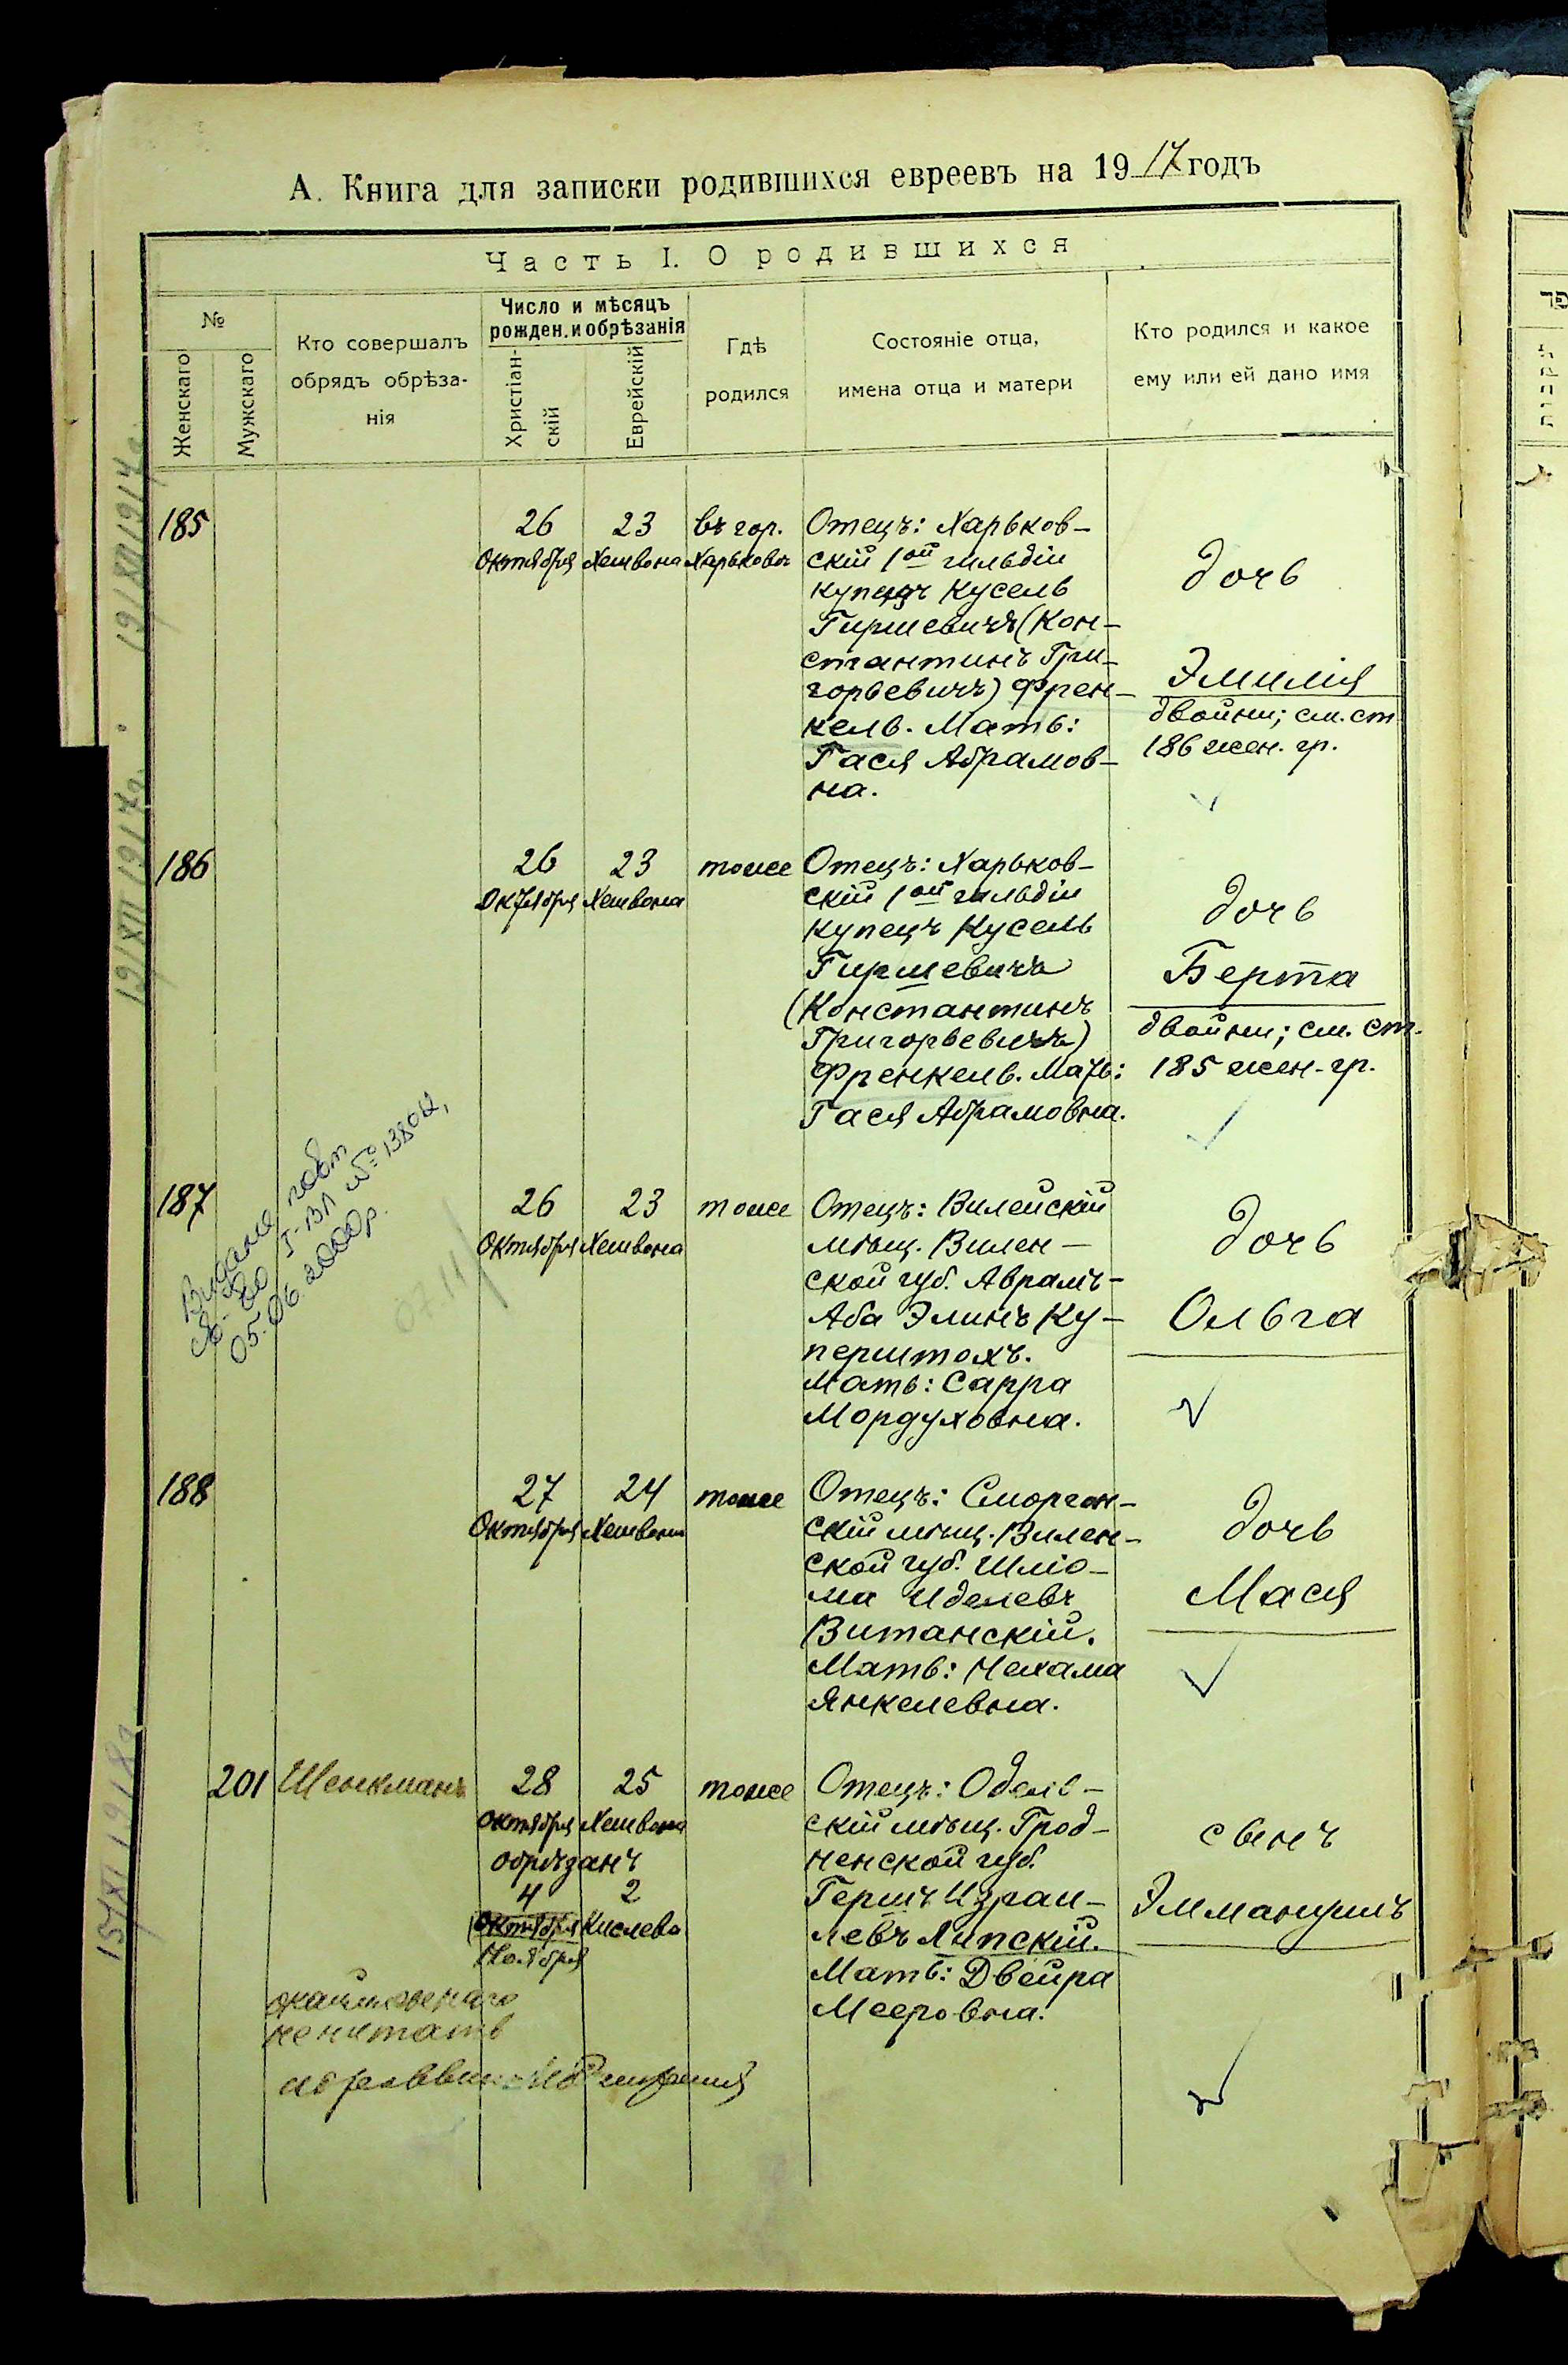 А. Книга для записки родившихся евреевъ на 1917 годъ
Часть I. О родившихся
№
Женскаго
Мужскаго
Кто совершалъ
обрядъ обрѣза-
нія
Число и мѣсяцъ
рожден. и обрѣзанія
Христіан-
скій
Еврейскій
Гдѣ
родился
Состояніе отца,
имена отца и матери
Кто родился и какое
ему или ей дано имя
185
26
Октября
23
Хешвона
въ гор.
Харьковѣ
Отецъ: Харьков-
скій 1ой гильдіи
купецъ Кусель
Гиршевичъ (Кон-
стантинъ Гри-
горьевичъ) Френ-
кель. Мать:
Гася Абрамов-
на.
дочь
Эмилія
двойни; см. ст.
186 жен. гр.
186
26
Октября
23
Хешвона
тоже
Отецъ: Харьков-
скій 1ой гильдіи
купецъ Кусель
Гиршевичъ
(Константинъ
Григорьевичъ)
Френкель. Мать:
Гася Абрамовна.
дочь
Берта
двойни; см. ст.
185 жен. гр.
187
Видане повт
св-во I-ВЛ № 138012,
05.06.2000р.
07.11
26
Октября
23
Хешвона
тоже
Отецъ: Вилейскій
мѣщ. Вилен-
ской губ. Авраамъ-
Аба Элинъ Ку-
перштохъ.
Мать: Сарра
Мордуховна.
дочь
Ольга
188
27
Октября
24
Хешвона
тоже
Отецъ: Сморгон-
скій мѣщ. Вилен-
ской губ. Шліо-
ма Иделевъ
Витанскій.
Мать: Нехама
Янкелевна.
дочь
Мася
201
Шенкманъ
28
Октября
25
Хешвона
обрѣзанъ
4
Октября
Ноября
2
Кислева
тоже
Отецъ: Одель-
скій мѣщ. Грод-
ненской губ.
Гершъ Израи-
левъ Липскій.
Мать: Двейра
Мееровна.
сынъ
Эммануилъ
не читать
19/XII 1917г.
19/XII 1917г.
15/XI 1918г